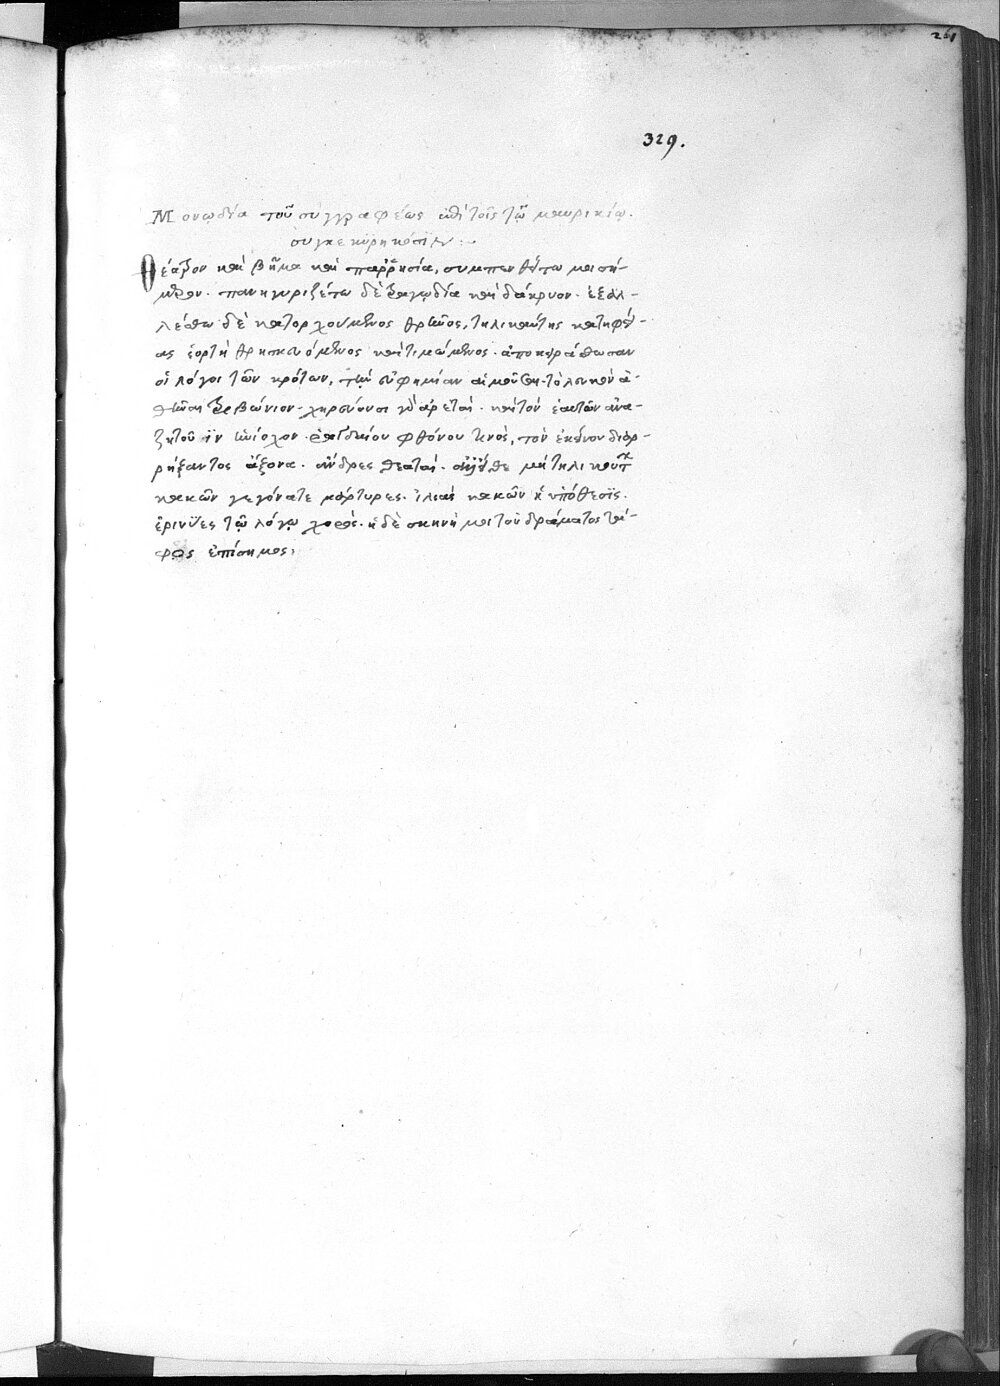 261
329.
Μονῳδία τοῦ συγγραφέως ἐπὶ τοῖς τῷ μαυρικίῳ.
συγκεκυρηκόσιν:~
Θέατρον καὶ βῆμα καὶ παρρησία, συμπενθείτω μοι σή-
μερον. πανηγυριζέτω δὲ τραγῳδία καὶ δάκρυον. ἐξαλ-
λέσθω δὲ κατορχούμενος θρῆνος, τηλικαύτης κατηφεί-
ας ἑορτὴ θρησκευόμενος καὶ τιμώμενος. ἀποκειράσθωσαν
οἱ λόγοι τῶν κρότων, τὴν εὐφημίαν αἱ μοῦσαι. τὸ λευκὸν ἀ-
θῆναι τριβώνιον. χηρεύουσι γὰρ ἀρεταί. καὶ τὸν ἑαυτῶν ἀνα-
ζητοῦσιν ἡνίοχον. φθόνου τινὸς, τὸν ἐκείνου διαρ-
ρήξαντος ἄξονα. ἄνδρες θεαταί. εἴθε μὴ τηλικούτων
κακῶν γεγόνατε μάρτυρες. ἰλιὰς κακῶν ἡ ὑπόθεσις.
ἐρινῦες τῷ λόγῳ χορός. ἡ δὲ σκηνή μοι τοῦ δράματος τά-
φος ἐπίσημος: